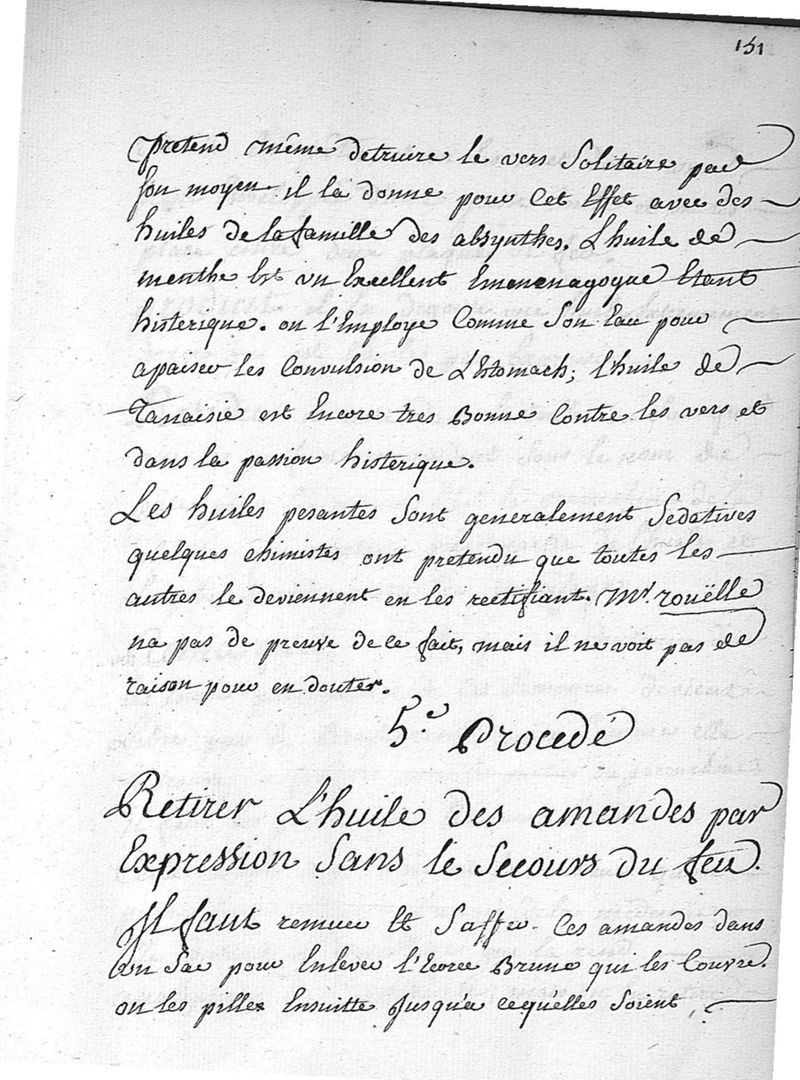 151
pretend même detruire le vers Solitaire par
son moyen il la donne pour Cet Effet avec des
huiles de la famille des absynthes. L'huile de
menthe Est un Excellent Emenenagogue Etant
histerique. on l'Employe Comme Son Eau pour
apaiser les Convulsion de L'Estomach; l'huile de
Tanaisie est Encore tres Bonne Contre les vers et
dans la passion histerique.
Les huiles pesantes Sont generalement Sedatives
quelques chimistes ont pretendu que toutes les
autres le deviennent en les rectifiant. Mr. rouëlle
na pas de preuve de ce fait, mais il ne voit pas de
raison pour en douter.
5.e Procedé
Retirer L'huile des amandes par
Expression Sans le Secours du feu.
Il faut remuer Et Ces amandes dans
un Sac pour Enlever l'Ecorce Brune qui les Couvre.
on les pille Ensuitte Jusqu'a cequ'elles Soient